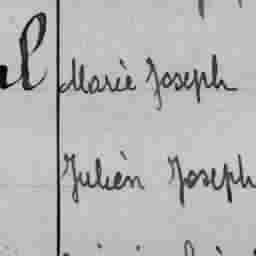 Marie Joseph
Julien Joseph